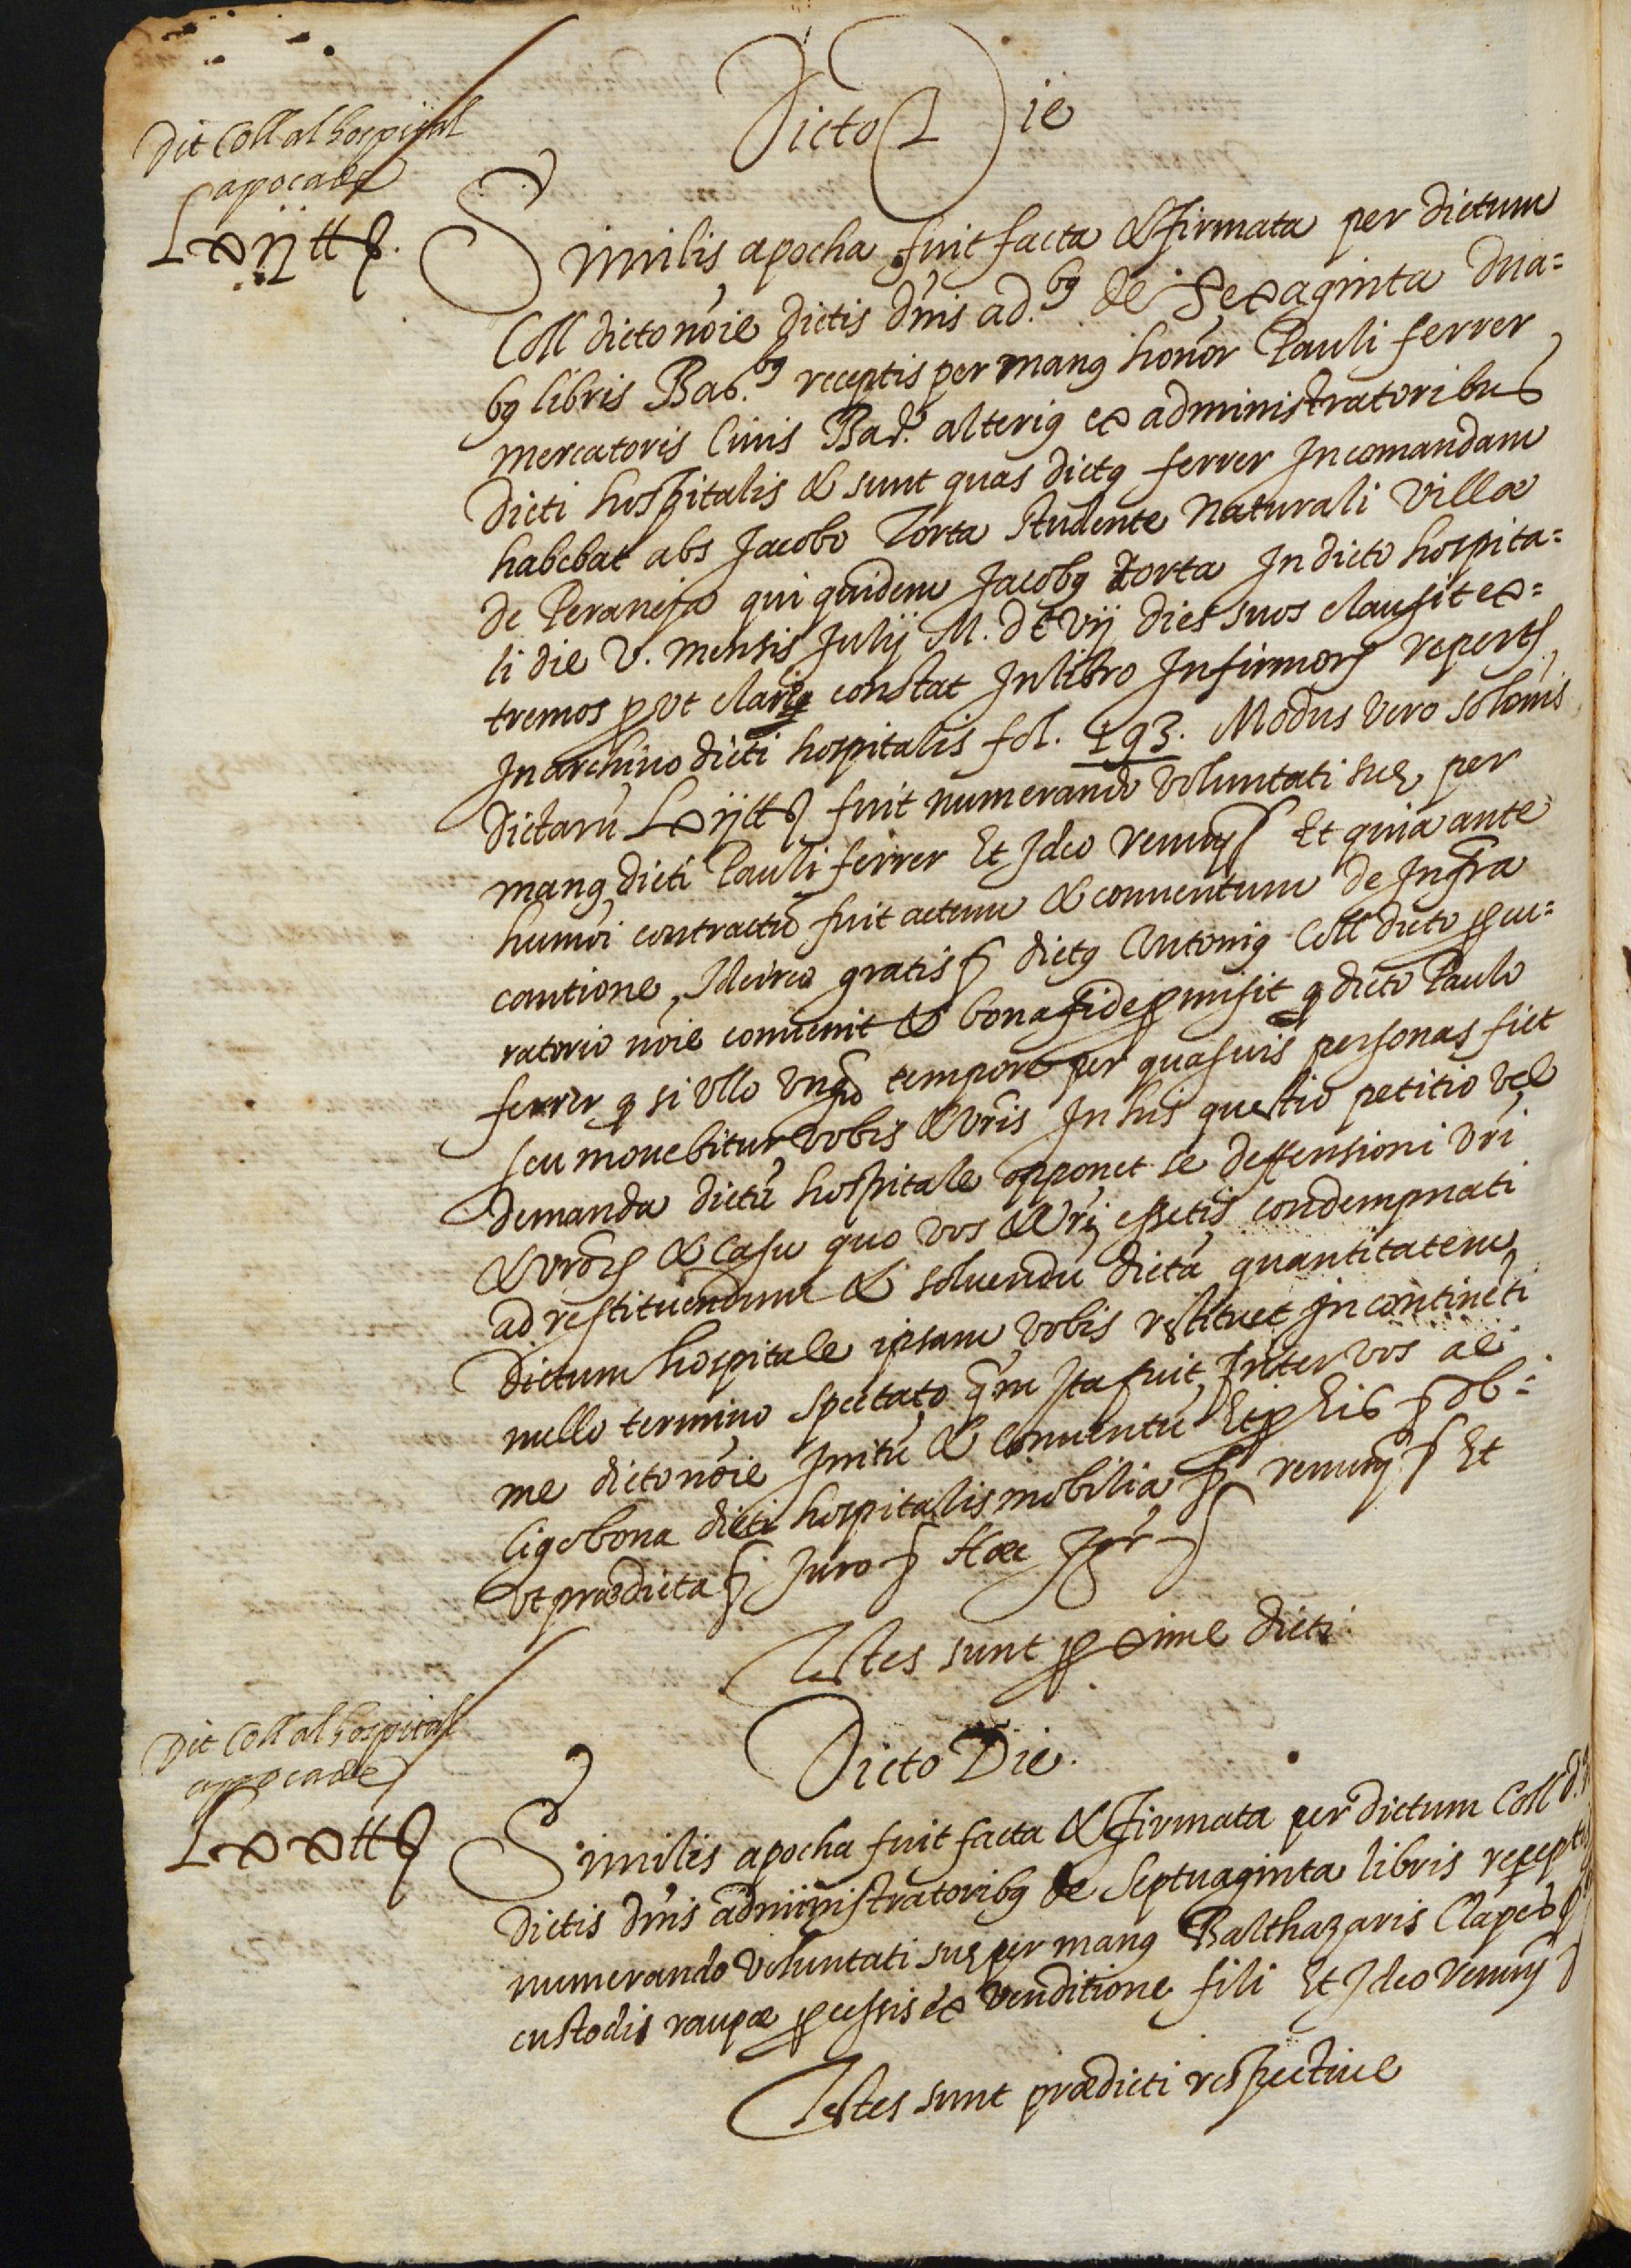 Dicto Die
Dit Coll al hospital
apoca de
Lxij ℔ s.
Similis apocha fuit facta & firmata per dictum
Coll dicto noīe dictis dnīs ad.bꝰ de sexaginta dua=
bꝰ libris Bar.bꝰ receptis per manꝰ honor Pauli ferrer
mercatoris Civis Bar. alteriꝰ ex administratoribus
dicti hospitalis & sunt quas dictꝰ ferrer In comandam
habebat abs Jacobo Torta studente naturali villæ
de Peraneja qui quidem Jacobꝰ torta In dicto hospita=
li die V. mensis Julij M. dc vij dies suos clausit ex=
tremos ꝓut clariꝰ constat In libro Infirmorꝝ
In archivo dicti hospitalis fol. 193. Modus vero solonis
dictarū Lxij ℔ s fuit numerando voluntati suę per
manꝰ dicti Pauli ferrer Et Ideo renunꝯ Et quia ante
humōi contractū fuit actum & conventum de Infra
cautione, Idcirco gratis ꝭ dictꝰ Antoniꝰ Coll dicto ꝓcu=
ratorio noīe convenit & bona fide ꝓmisit dicto Paulo
ferrer ꝙ si ullo unꝙ tempore per quasvis personas fiet
seu movebitur vobis & vrīs In his questio petitio vel
demanda dictū hospitale opponet se deffensioni vrī
& vrōrꝝ & Casu quo vos & vrī essetis condempnati
ad restituendum & solvendū dictā quantitatem
dictum hospitale ipsam vobis restituet In continēti
nullo termino spectato qm̄ Ita fuit Inter vos al
me dicto noīe Initū & Conventū Et ꝓ his ꝭ ob=
ligo bona dicti hospitalis mobilia ꝭ renunꝯ ꝭ Et
ut prædicta ꝭ Juro ꝭ Hæc Igr̄ ꝭ
Testes sunt ꝓxime dicti
Dicto Die.
Dit Coll al hospital
apoca de
Lxx ℔ s
Similis apocha fuit facta & firmata per dictum Coll
dictis dnīs administratoribꝰ de septuaginta libris receptis
numerando voluntati suę per manꝰ Balthazaris Claped
custodis raupæ ꝓcessis ex venditione fili Et Ideo renunꝯ
Testes sunt prædicti respective